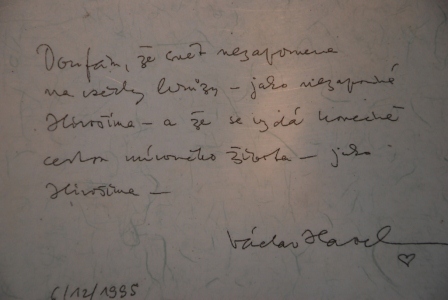 Doufám, že svět nezapomene
na všechny hrůzy – jako nezapomíná
Hirošima – a že se vydá konečně
cestou mírového života – jako
Hirošima –
Václav Havel
6/12/1995